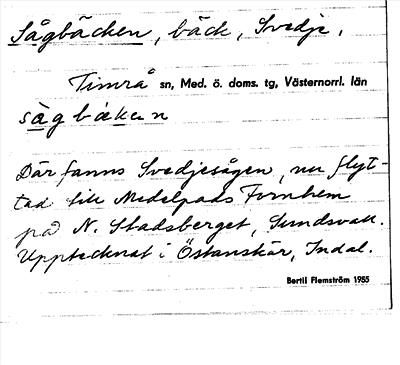 Sågbäcken, bäck, Svedje,
Timrå sn, Med. ö. doms. tg, Västernorrl. län
sågbäken
Där fanns Svedjesågen, nu flyt-
tad till Medelpads Fornhem
på N. Stadsberget, Sundsvall.
Upptecknat i Östanskär, Indal.
Bertil Flemström 1985